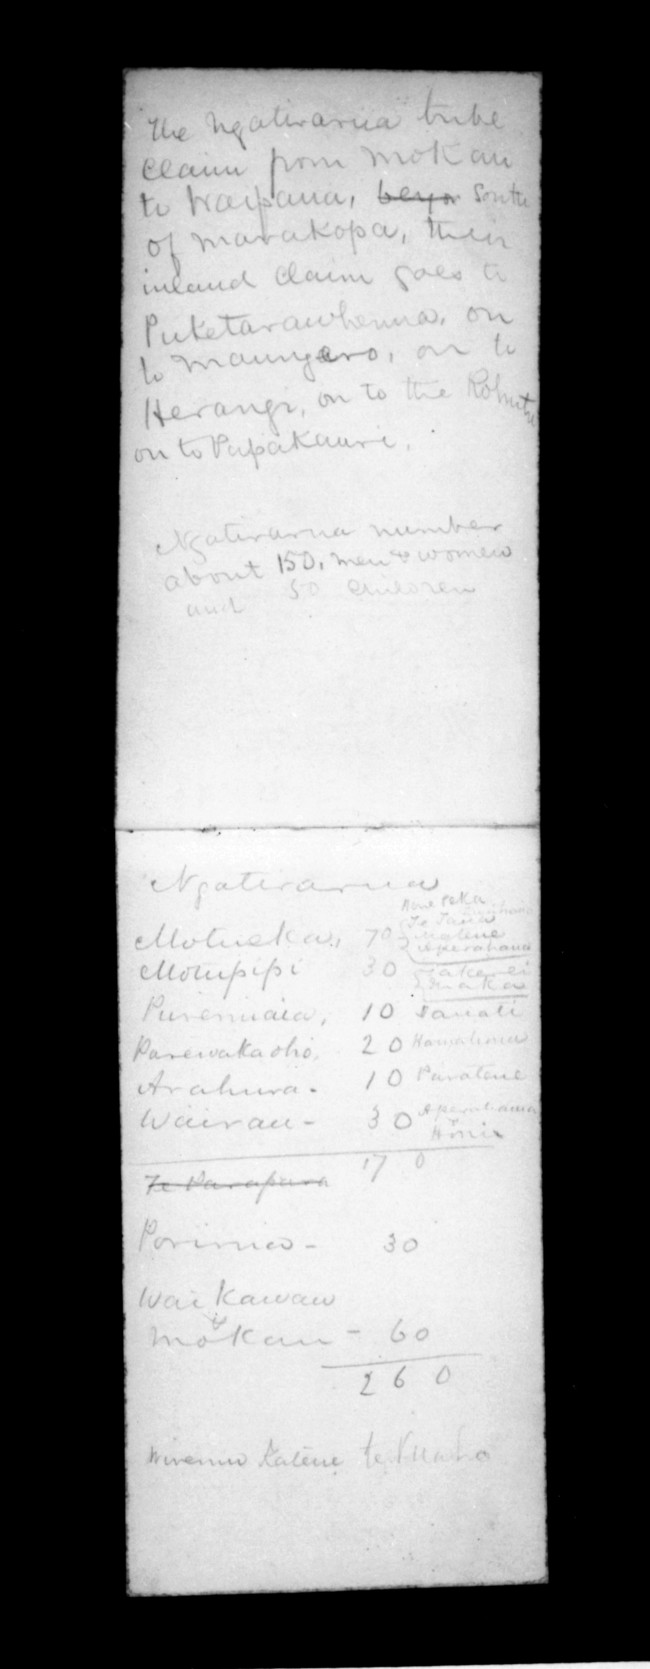 The Ngatirarua tribe
claim from Mokau
to Waipaua, beyon South
of Marakopa, their
inland claim goes to
Puketarawhenua, on
to Maungaro, on to
Herangi, on to the
on to Papakauri.
Ngatirarua number
about 150, men & women
and 50 children
Ngatirarua
Motueka, 70 Te Tana Matene Aperahama
Motupipi 30
Puremaia, 10
Parewakaoho, 20
Arahura. 10 Paratene
Wairau - 30 Aperahama & Honie
170
Te Parapara
Porirua - 30
Waikawau
&
Mokau - 60
260
Wiremu Katene te